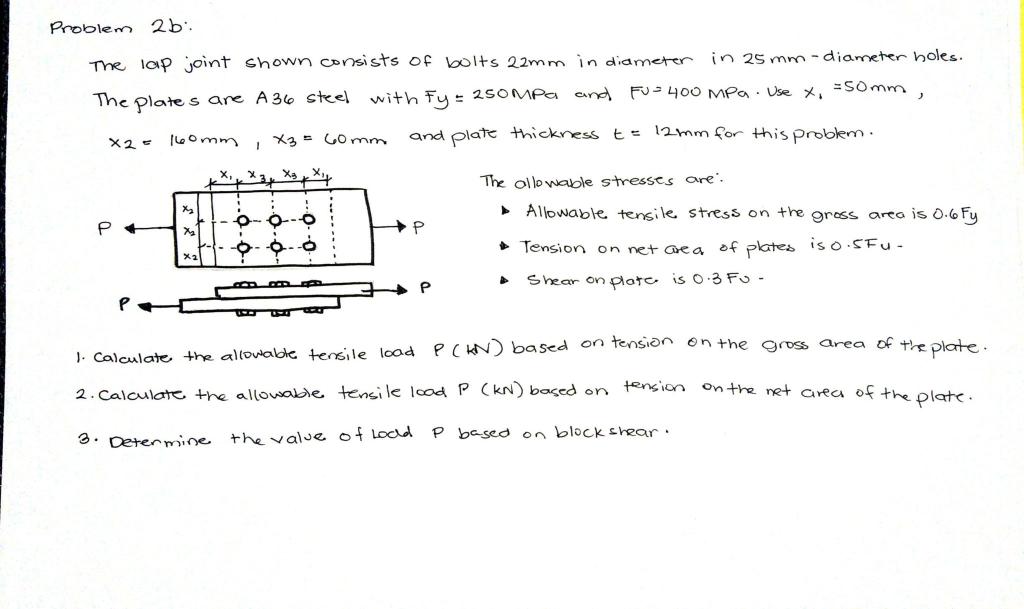 Problem 2b:
The lap joint shown consists of bolts 22mm in diameter in 25 mm-diameter holes.
The plates are A36 steel with Fy = 250MPa and Fu = 400 MPa. Use x1 = 50mm,
x2 = 160mm, x3 = 60mm and plate thickness t = 12mm for this problem.
x1 x3 x3 x1
The allowable stresses are:
x2
▸ Allowable tensile stress on the gross area is 0.6Fy
P x2 P
▸ Tension on net area of plates is 0.5Fu -
x2
▸ Shear on plate is 0.3 Fu -
P
P
1. Calculate the allowable tensile load P (kN) based on tension on the gross area of the plate.
2. Calculate the allowable tensile load P (kN) based on tension on the net area of the plate.
3. Determine the value of Load P based on block shear.